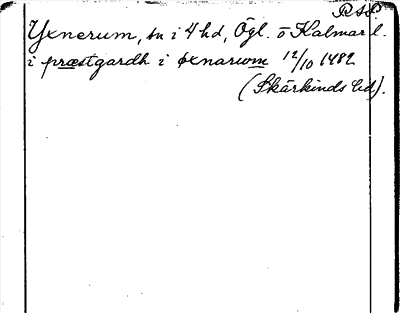 RAP.
Yxnerum, sn i 4 hd, Ögl. o Kalmar l.
i præstgardh i øxnarwm 12/10 1482
(Skärkinds hd).